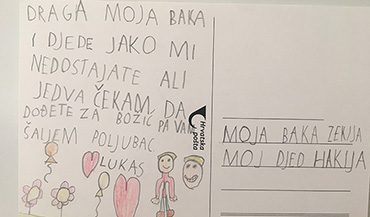 DRAGA MOJA BAKA
I DJEDE JAKO MI
NEDOSTAJATE ALI
JEDVA ČEKAM DA
DOĐETE ZA BOŽIĆ PA VAM
ŠALJEM POLJUBAC
LUKAS
Hrvatska
pošta
MOJA BAKA ZEKIJA
MOJ DJED HAKIJA